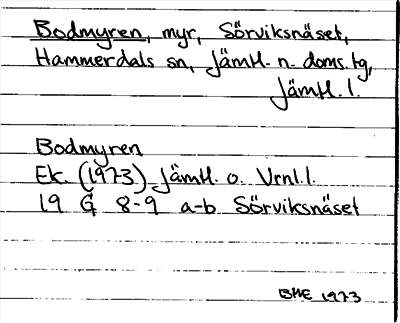 Bodmyren, myr, Sörviksnäset,
Hammerdals sn, Jämtl. n. doms.tg,
Jämtl. l.
Bodmyren
Ek. (1973) Jämtl. o. Vrnl. l.
19 G 8-9 a-b Sörviksnäset
BME 1973